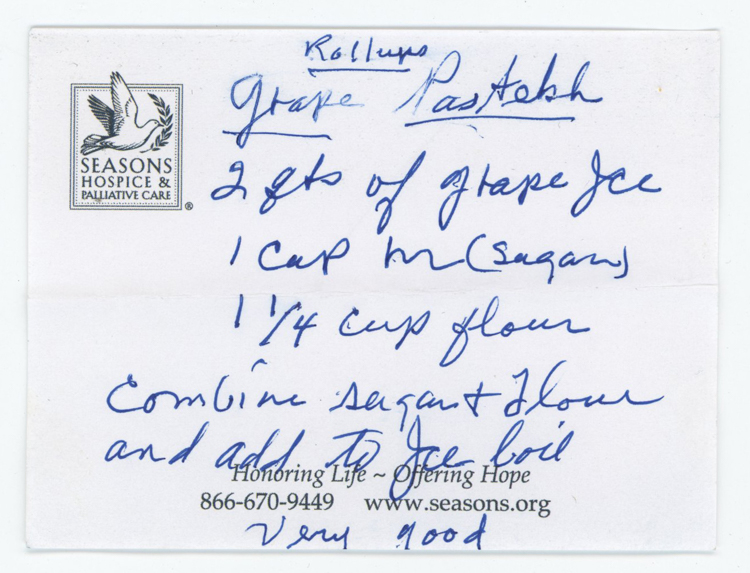 Rollups
Grape Pastekh
SEASONS
HOSPICE &
PALLIATIVE CARE
®
2 qts of grape Jce
1 cup (sugar)
1 1/4 cup flour
Combine sugar + flour
and add to Jce boil
Honoring Life ~ Offering Hope
866-670-9449 www.seasons.org
Very good